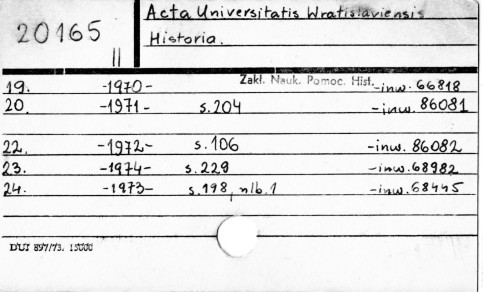 20165
II
Acta Universitatis Wratislaviensis
Historia.
Zakł. Nauk. Pomoc. Hist.
19. -1970- -inw. 66818
20. -1971- s.204 -inw. 86081
22. -1972- s.106 -inw. 86082
23. -1974- s.229 -inw. 68982
24. -1973- s.198, nlb.1 -inw. 68445
DUJ 897/73. 15000